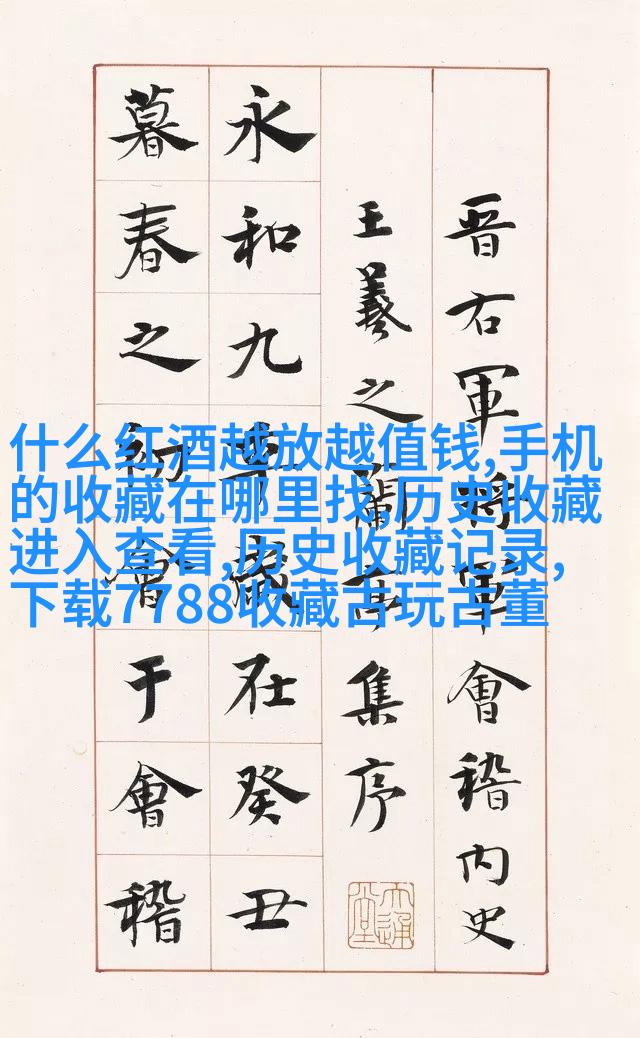 晋右軍將軍會稽内史
王羲之蘭亭集序
永和九年歲在癸丑
暮春之初會于會稽
什么红酒越放越值钱,手机
的收藏在哪里找,历史收藏
进入查看,历史收藏记录,
下载7788收藏古玩古董